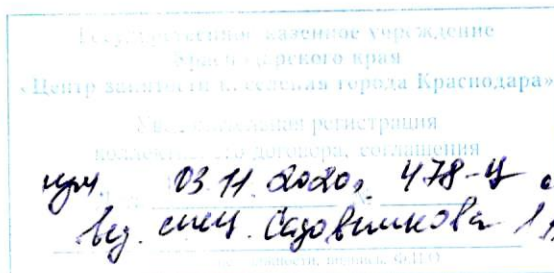 Государственное казенное учреждение
Краснодарского края
«Центр занятости населения города Краснодара»
Уведомительная регистрация
коллективного договора, соглашения
03.11.2020г. 478-Ц
вед. спец. Садовникова
подпись, Ф.И.О.